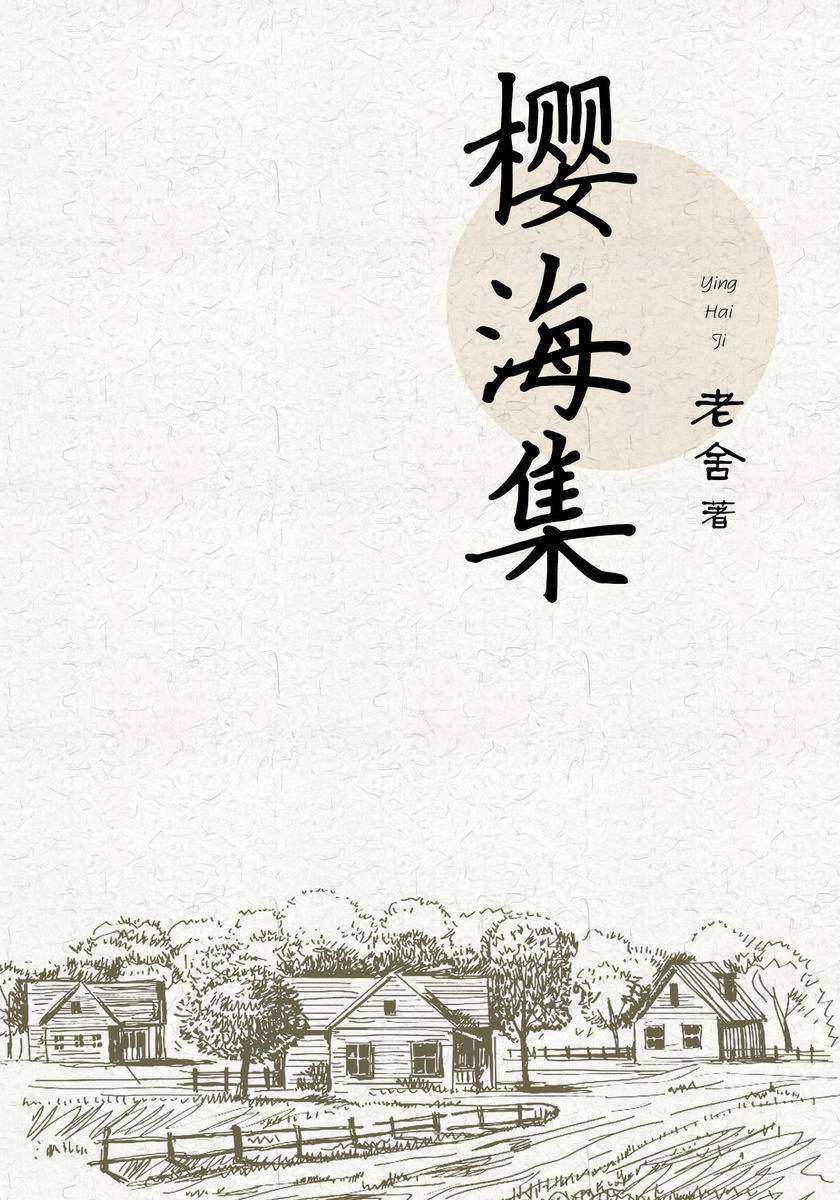 樱海集
Ying
Hai
Ji
老舍著